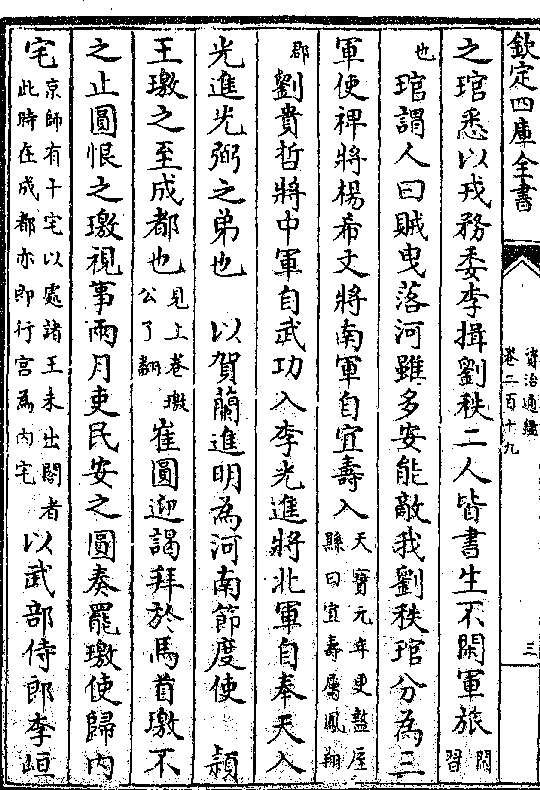 欽定四庫全書
資治通鑑
卷二百十九
三
之琯悉以戎務委李揖劉秩二人皆書生不閑軍旅閑習
也琯謂人曰賊曳落河雖多安能敵我劉秩琯分為三
軍使裨將楊希文將南軍自宜壽入天寶元年更盩厔縣曰宜壽屬鳳翔
郡劉貴哲將中軍自武功入李光進將北軍自奉天入
光進光弼之弟也 以賀蘭進明為河南節度使 潁
王璬之至成都也見上卷璬公了翻崔圓迎謁拜於馬首璬不
之止圓恨之璬視事兩月吏民安之圓奏罷璬使歸內
宅京師有十宅以處諸王未出閤者此時在成都亦即行宮為內宅以武部侍郎李峘